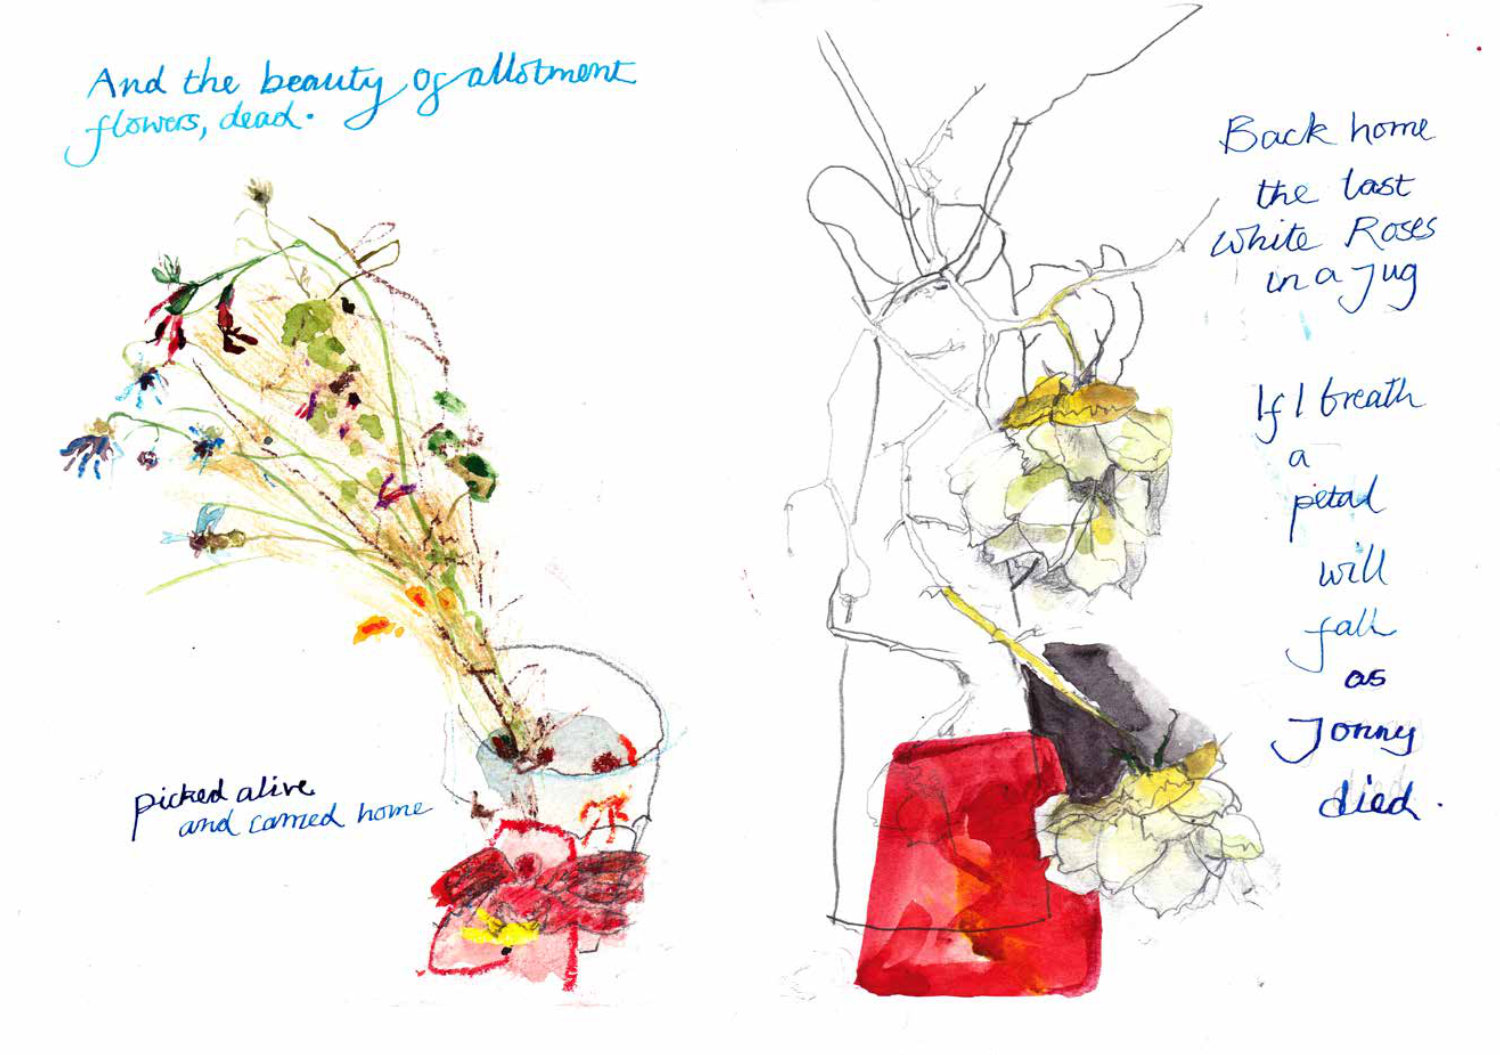 And the beauty of allotment
flowers, dead.
picked alive
and carried home
Back home
the last
white Roses
in a Jug
If I breath
a
petal
will
fall
as
Jonny
died.